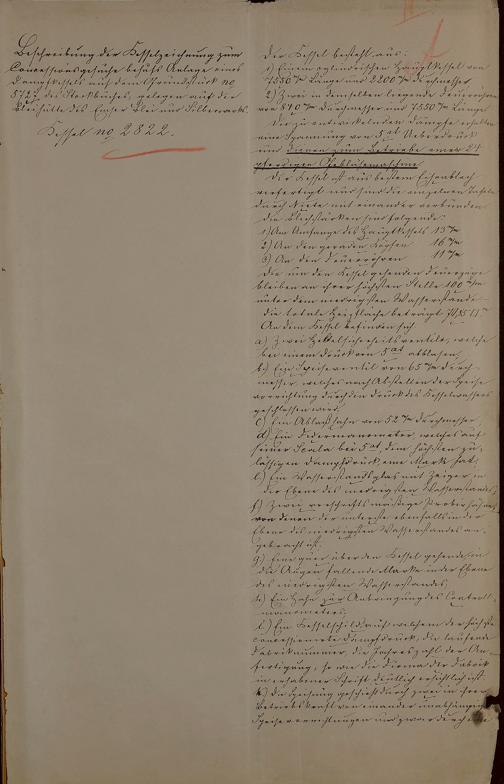 Beschreibung der Kesselzeichnung zum
Concessionsgesuche behufs Anlage eines
Dampfkessels auf dem Grundstück No
572 des Flurbuches, gelegen auf der
Bleihütte des Emser Blei und Silberwerks.
Kessel No 2822.
Der Kessel besteht aus:
1) Einem cylindrischen Hauptkessel von
7550 m/m Länge und 2200 m/m Durchmesser
2) Zwei in demselben liegende Feuerrohren
von 810 m/m Durchmesser und 7550 m/m Länge
Die zu entwickelnden Dämpfe erhalten
eine Spannung von 5 at Ueberdruck
und dienen zum Betriebe einer 25
pferdigen Gebläsemaschine
Der Kessel ist aus bestem Eisenblech
verfertigt und sind die einzelnen Tafeln
durch Niete mit einander verbunden
die Blechstärken sind folgende:
1) Am Umfange des Hauptkessels 15 m/m
2) An den geraden Köpfen 16 m/m
3) An den Feuerröhren 11 m/m
Die um den Kessel gehenden Feuerzüge
bleiben an ihrer höchsten Stelle 100 m/m
unter dem niedrigsten Wasserstande
die totale Heizfläche beträgt
An dem Kessel befinden sich
a) Zwei Hebelsicherheitsventile, welche
bei einem Druck von 5 at abblasen,
b) Ein Speiseventil von 65 m/m Durch-
messer, welches nach Abstellen der Speise
vorrichtung durch den Druck des Kesselwassers
geschlossen wird,
c) Ein Ablaßhahn von 52 m/m Durchmesser
d) Ein Federmanometer, welches auf
seiner Scala bei 5 at, dem höchsten zu-
lässigen Dampfdruck eine Marke hat;
e) Ein Wasserstandsglas mit Zeiger in
der Ebene des niedrigsten Wasserstandes,
f) Zwei vorschriftsmäßige Probirhähne,
von denen der unterste ebenfalls in der
Ebene des niedrigsten Wasserstandes an-
gebracht ist,
g) Eine quer über den Kessel gehende in
die Augen fallende Marke in der Ebene
des niedrigsten Wasserstandes,
h) Ein Hahn zur Anbringung des Controll-
manometers;
i) Ein Kesselschild auf welchem der höchste
concessionirte Dampfdruck, die laufende
Fabriknummer, die Jahreszahl der An-
fertigung, so wie die Firma der Fabrik
in erhabener Schrift deutlich ersichtlich ist
k) Die Speisung geschieht durch zwei in ihrer
Betriebskraft von einander unabhängige
Speisevorrichtungen und zwar durch